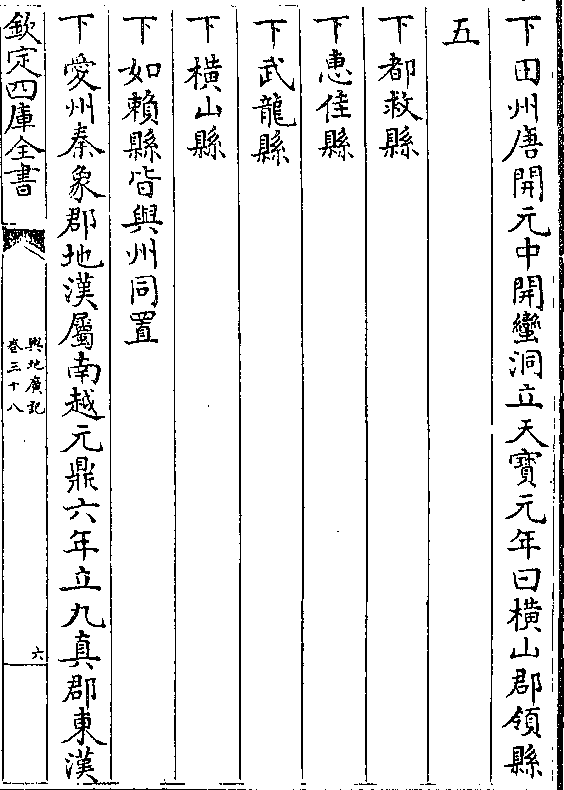 下田州唐開元中開蠻洞立天寶元年曰橫山郡領縣
五
下都救縣
下惠佳縣
下武龍縣
下橫山縣
下如賴縣皆與州同置
下愛州秦象郡地漢屬南越元鼎六年立九真郡東漢
欽定四庫全書
輿地廣記
卷三十八
六